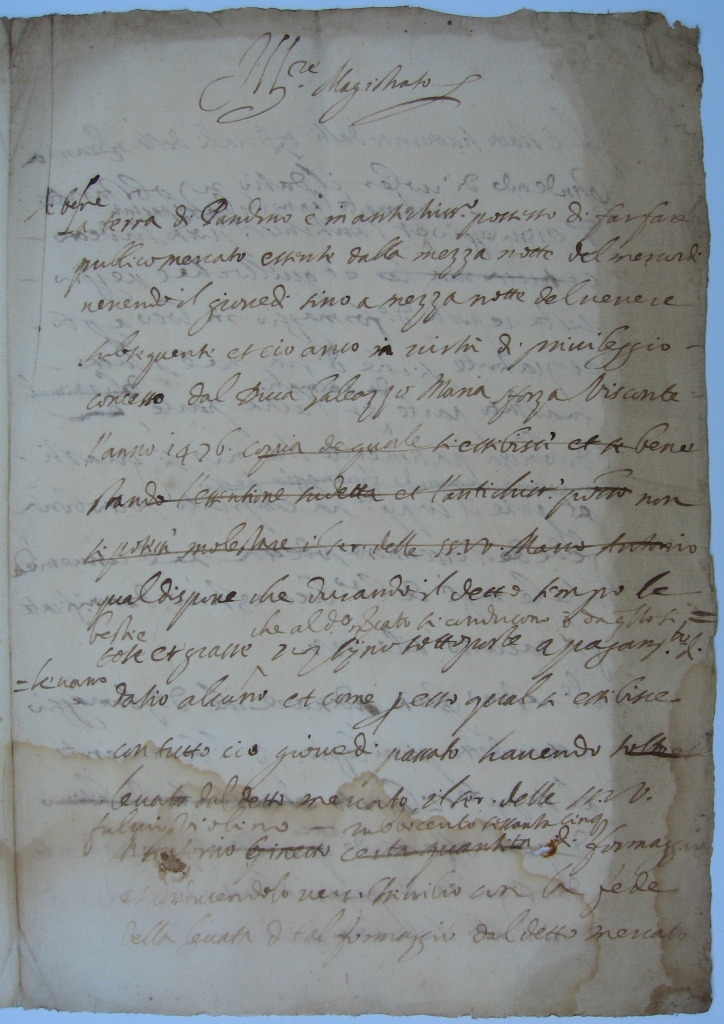 Ill.re Magistrato
La terra di Pandino è in antichiss.o possesso di far fare
publico mercato essente dalla mezza notte del mercordi
venendo il giovedi sino a mezza notte del venere
subsequente et cio anco in virtù di privileggio
concesso dal Duca Galeazzo Maria Sforza Visconte
l'anno 1476. copia de quale si essibisse et se bene
stando l'essentione sudetta et l'antichiss.o posso non
si potria molestare il ser. delle SS.VV. Marco Antonio
qual dispone che durando il detto tempo le
bestie che al do. mercato si conducono o da q.llo si
= levano
cose et grasse non siano sottoposte a pagam.to
datio alcuno et come p esso qual si essibisce
con tutto cio giovedi passato havendo
levato dal detto mercato il ser. delle SS.VV.
novecento sessanta cinq
Antonio certa quantità di formaggio
et conducendolo verso con la fede
della levata di tal formaggio dal detto mercato